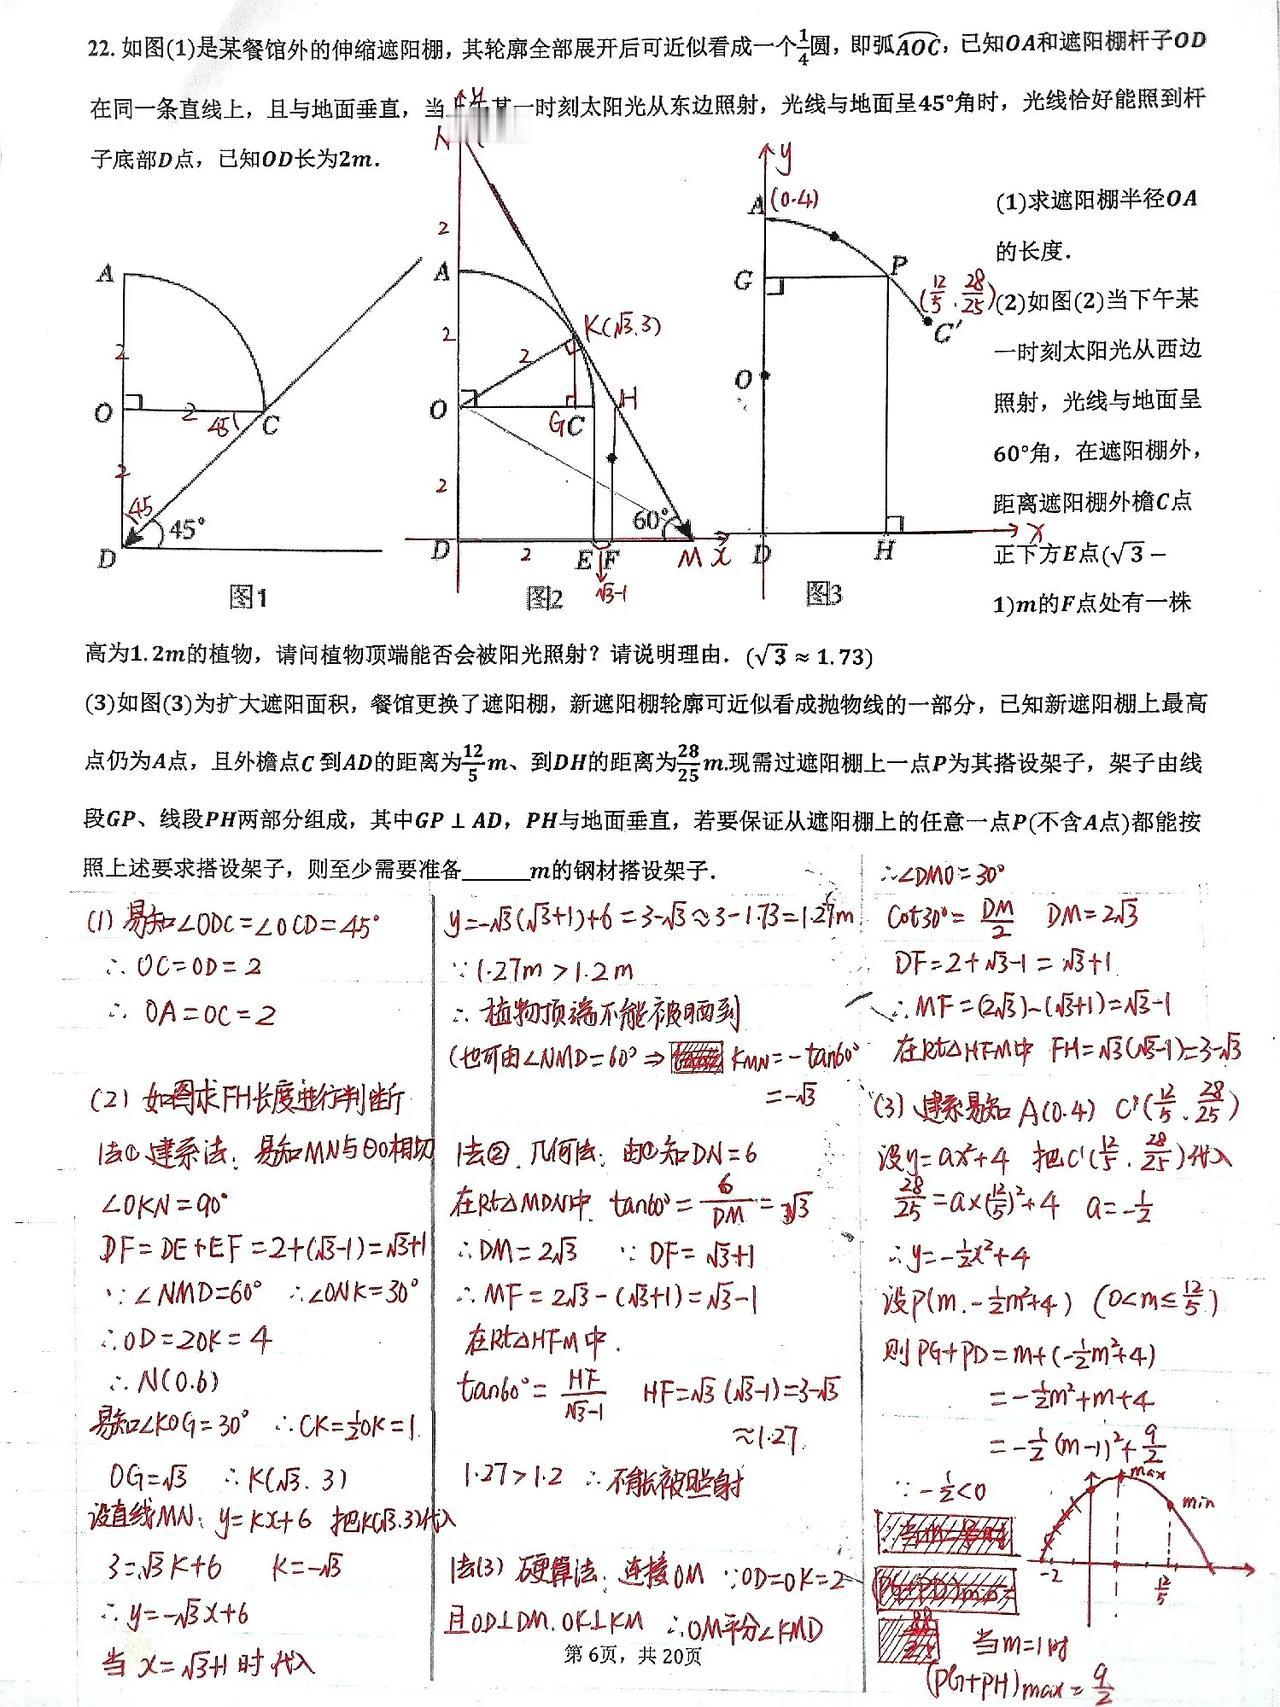 22. 如图(1)是某餐馆外的伸缩遮阳棚，其轮廓全部展开后可近似看成一个1/4圆，即弧AOC，已知OA和遮阳棚杆子OD
在同一条直线上，且与地面垂直，当上午某一时刻太阳光从东边照射，光线与地面呈45°角时，光线恰好能照到杆
子底部D点，已知OD长为2m.
(1)求遮阳棚半径OA
的长度.
(2)如图(2)当下午某
一时刻太阳光从西边
照射，光线与地面呈
60°角，在遮阳棚外，
距离遮阳棚外檐C点
正下方E点(√3−
1)m的F点处有一株
A
2
O
2
45
C
2
45
45°
D
图1
y
N
2
A
2
K(√3.3)
2
O
G
C
H
2
60°
D
2
E
F
M
x
√3-1
图2
y
A
(0.4)
G
P
(12/5, 28/25)
C'
O
D
H
x
图3
高为1.2m的植物，请问植物顶端能否会被阳光照射？请说明理由. (√3 ≈ 1.73)
(3)如图(3)为扩大遮阳面积，餐馆更换了遮阳棚，新遮阳棚轮廓可近似看成抛物线的一部分，已知新遮阳棚上最高
点仍为A点，且外檐点C 到AD的距离为12/5m、到DH的距离为28/25m.现需过遮阳棚上一点P为其搭设架子，架子由线
段GP、线段PH两部分组成，其中GP ⊥ AD，PH与地面垂直，若要保证从遮阳棚上的任意一点P(不含A点)都能按
照上述要求搭设架子，则至少需要准备______m的钢材搭设架子.
(1) 易知∠ODC=∠OCD=45°
∴ OC=OD=2
∴ OA=OC=2
(2) 如图求FH长度进行判断
法① 建系法: 易知MN与⊙O相切
∠OKN=90°
DF=DE+EF=2+(√3-1)=√3+1
∵∠NMD=60° ∴∠ONK=30°
∴OD=2OK=4
∴ N(0.6)
易知∠KOG=30° ∴CK=1/2OK=1
OG=√3 ∴K(√3. 3)
设直线MN: y=kx+6 把K(√3.3)代入
3=√3K+6 K=-√3
∴ y=-√3x+6
当 x=√3+1 时 代入
y=-√3(√3+1)+6=3-√3≈3-1.73=1.27m
∵ 1.27m>1.2m
∴ 植物顶端不能被晒到
(也可由∠NMD=60° ⇒ KMN=-tan60°
=-√3
法② 几何法: 由①知DN=6
在Rt△MDN中 tan60°=6/DM=√3
∴DM=2√3 ∵ DF=√3+1
∴MF=2√3-(√3+1)=√3-1
在Rt△HFM中.
tan60°=HF/√3-1 HF=√3(√3-1)=3-√3
≈1.27
1.27>1.2 ∴不能被照射
法(3) 硬算法: 连接OM ∵OD=OK=2
且OD⊥DM. OK⊥KM ∴OM平分∠KMD
∴∠DMO=30°
Cot30°=DM/2 DM=2√3
DF=2+√3-1=√3+1
∴MF=(2√3)-(√3+1)=√3-1
在Rt△HFM中 FH=√3(√3-1)=3-√3
(3) 建系易知 A(0.4) C'(12/5. 28/25)
设y=ax²+4 把C'(12/5. 28/25)代入
28/25=a×(12/5)²+4 a=-1/2
∴y=-1/2x²+4
设P(m. -1/2m²+4) (0<m≤12/5)
则PG+PD=m+(-1/2m²+4)
=-1/2m²+m+4
=-1/2(m-1)²+9/2
∵ -1/2<0
max
min
-2
12/5
当m=1时
(PG+PH)max=9/2
第 6页，共 20页